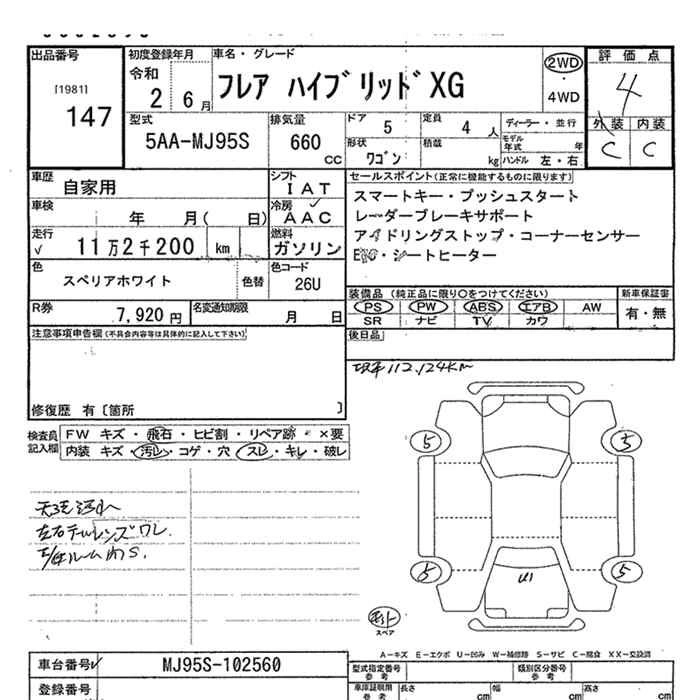 出品番号
[1981]
147
初度登録年月
令和
2 6月
車名・グレード
フレア ハイブリッドXG
2WD
4WD
評価点
4
外装 内装
C C
型式
5AA-MJ95S
排気量
660
cc
ドア 5
定員 4 人
形状 ワゴン
積載 kg
ディーラー・並行
モデル年式 年
ハンドル 左・右
車歴
自家用
シフト
IAT
車検
年 月( 日)
冷房
AAC
走行
11万2千200 km
燃料
ガソリン
色
スペリアホワイト
色替
色コード
26U
R券
7,920円
名変通知期限
月 日
セールスポイント(正常に機能するものに限ります)
スマートキー・プッシュスタート
レーダーブレーキサポート
アイドリングストップ・コーナーセンサー
シートヒーター
装備品 (純正品に限り○をつけてください)
PS PW ABS エアB AW
SR ナビ TV カワ
新車保証書
有・無
後日品
注意事項申告欄(不具合内容等は具体的に記入して下さい)
修復歴 有〔箇所 〕
112,124KM
検査員
記入欄
FW キズ・飛石・ヒビ割・リペア跡・×要
内装 キズ・汚レ・コゲ・穴・スレ・キレ・破レ
天活汚れ
左右テールレンズワレ
5 5
5 5
U1
スペア
A-キズ E-エクボ U-凹み W-補修跡 S-サビ C-腐食 XX-交換済
車台番号
MJ95S-102560
登録番号
型式指定番号
参考
類別区分番号
参考
車庫証明用
参考
長さ cm
幅 cm
高さ cm